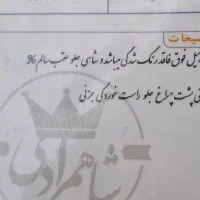 سیحات
بیل فوق فاقد رنگ شدگی میباشد و شاسی جلو عقب سالم 96
نی پشت چراغ جلو راست خوردگی جزئی
شاهمرادی